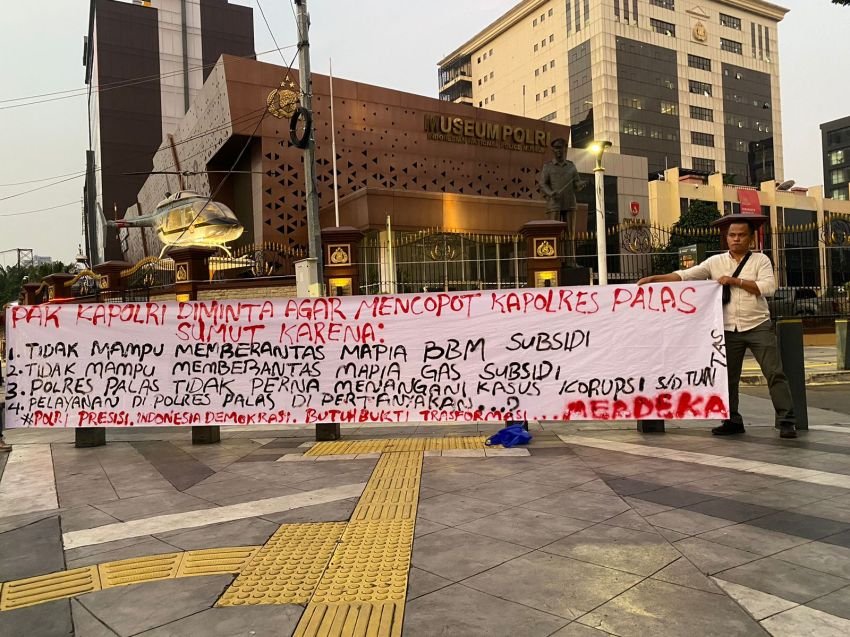 MUSEUM POLRI
INDONESIAN NATIONAL POLICE MUSEUM
PAK KAPOLRI DIMINTA AGAR MENCOPOT KAPOLRES PALAS
SUMUT KARENA:
1. TIDAK MAMPU MEMBERANTAS MAPIA BBM SUBSIDI
2. TIDAK MAMPU MEMBERANTAS MAPIA GAS SUBSIDI
3. POLRES PALAS TIDAK PERNA MENANGANI KASUS KORUPSI S/D TUNTAS
4. PELAYANAN DI POLRES PALAS DI PERTANYAKAN...?
#POLRI PRESISI. INDONESIA DEMOKRASI. BUTUH BUKTI TRASFORMASI.... MERDEKA